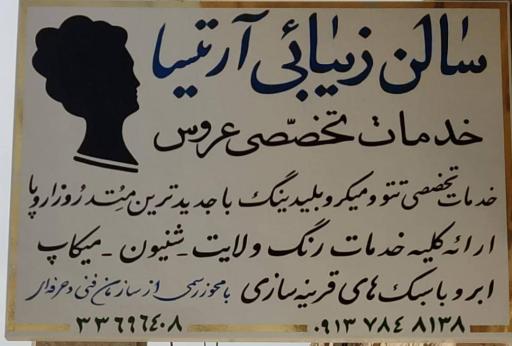 سالن زیبائی آرتیسا
خدمات تخصّصی عروس
خدمات تخصصی تتو و میکروبلیدینگ با جدیدترین مِتُد روز اروپا
ارائه کلیه خدمات رنگ و لایت - شنیون - میکاپ
ابرو با سبک های قرینه سازی با مجوز رسمی از سازمان فنی و حرفه‌ای
۳۳۶۹۶۴۰۸
۰۹۱۳ ۷۸۴ ۸۱۳۸